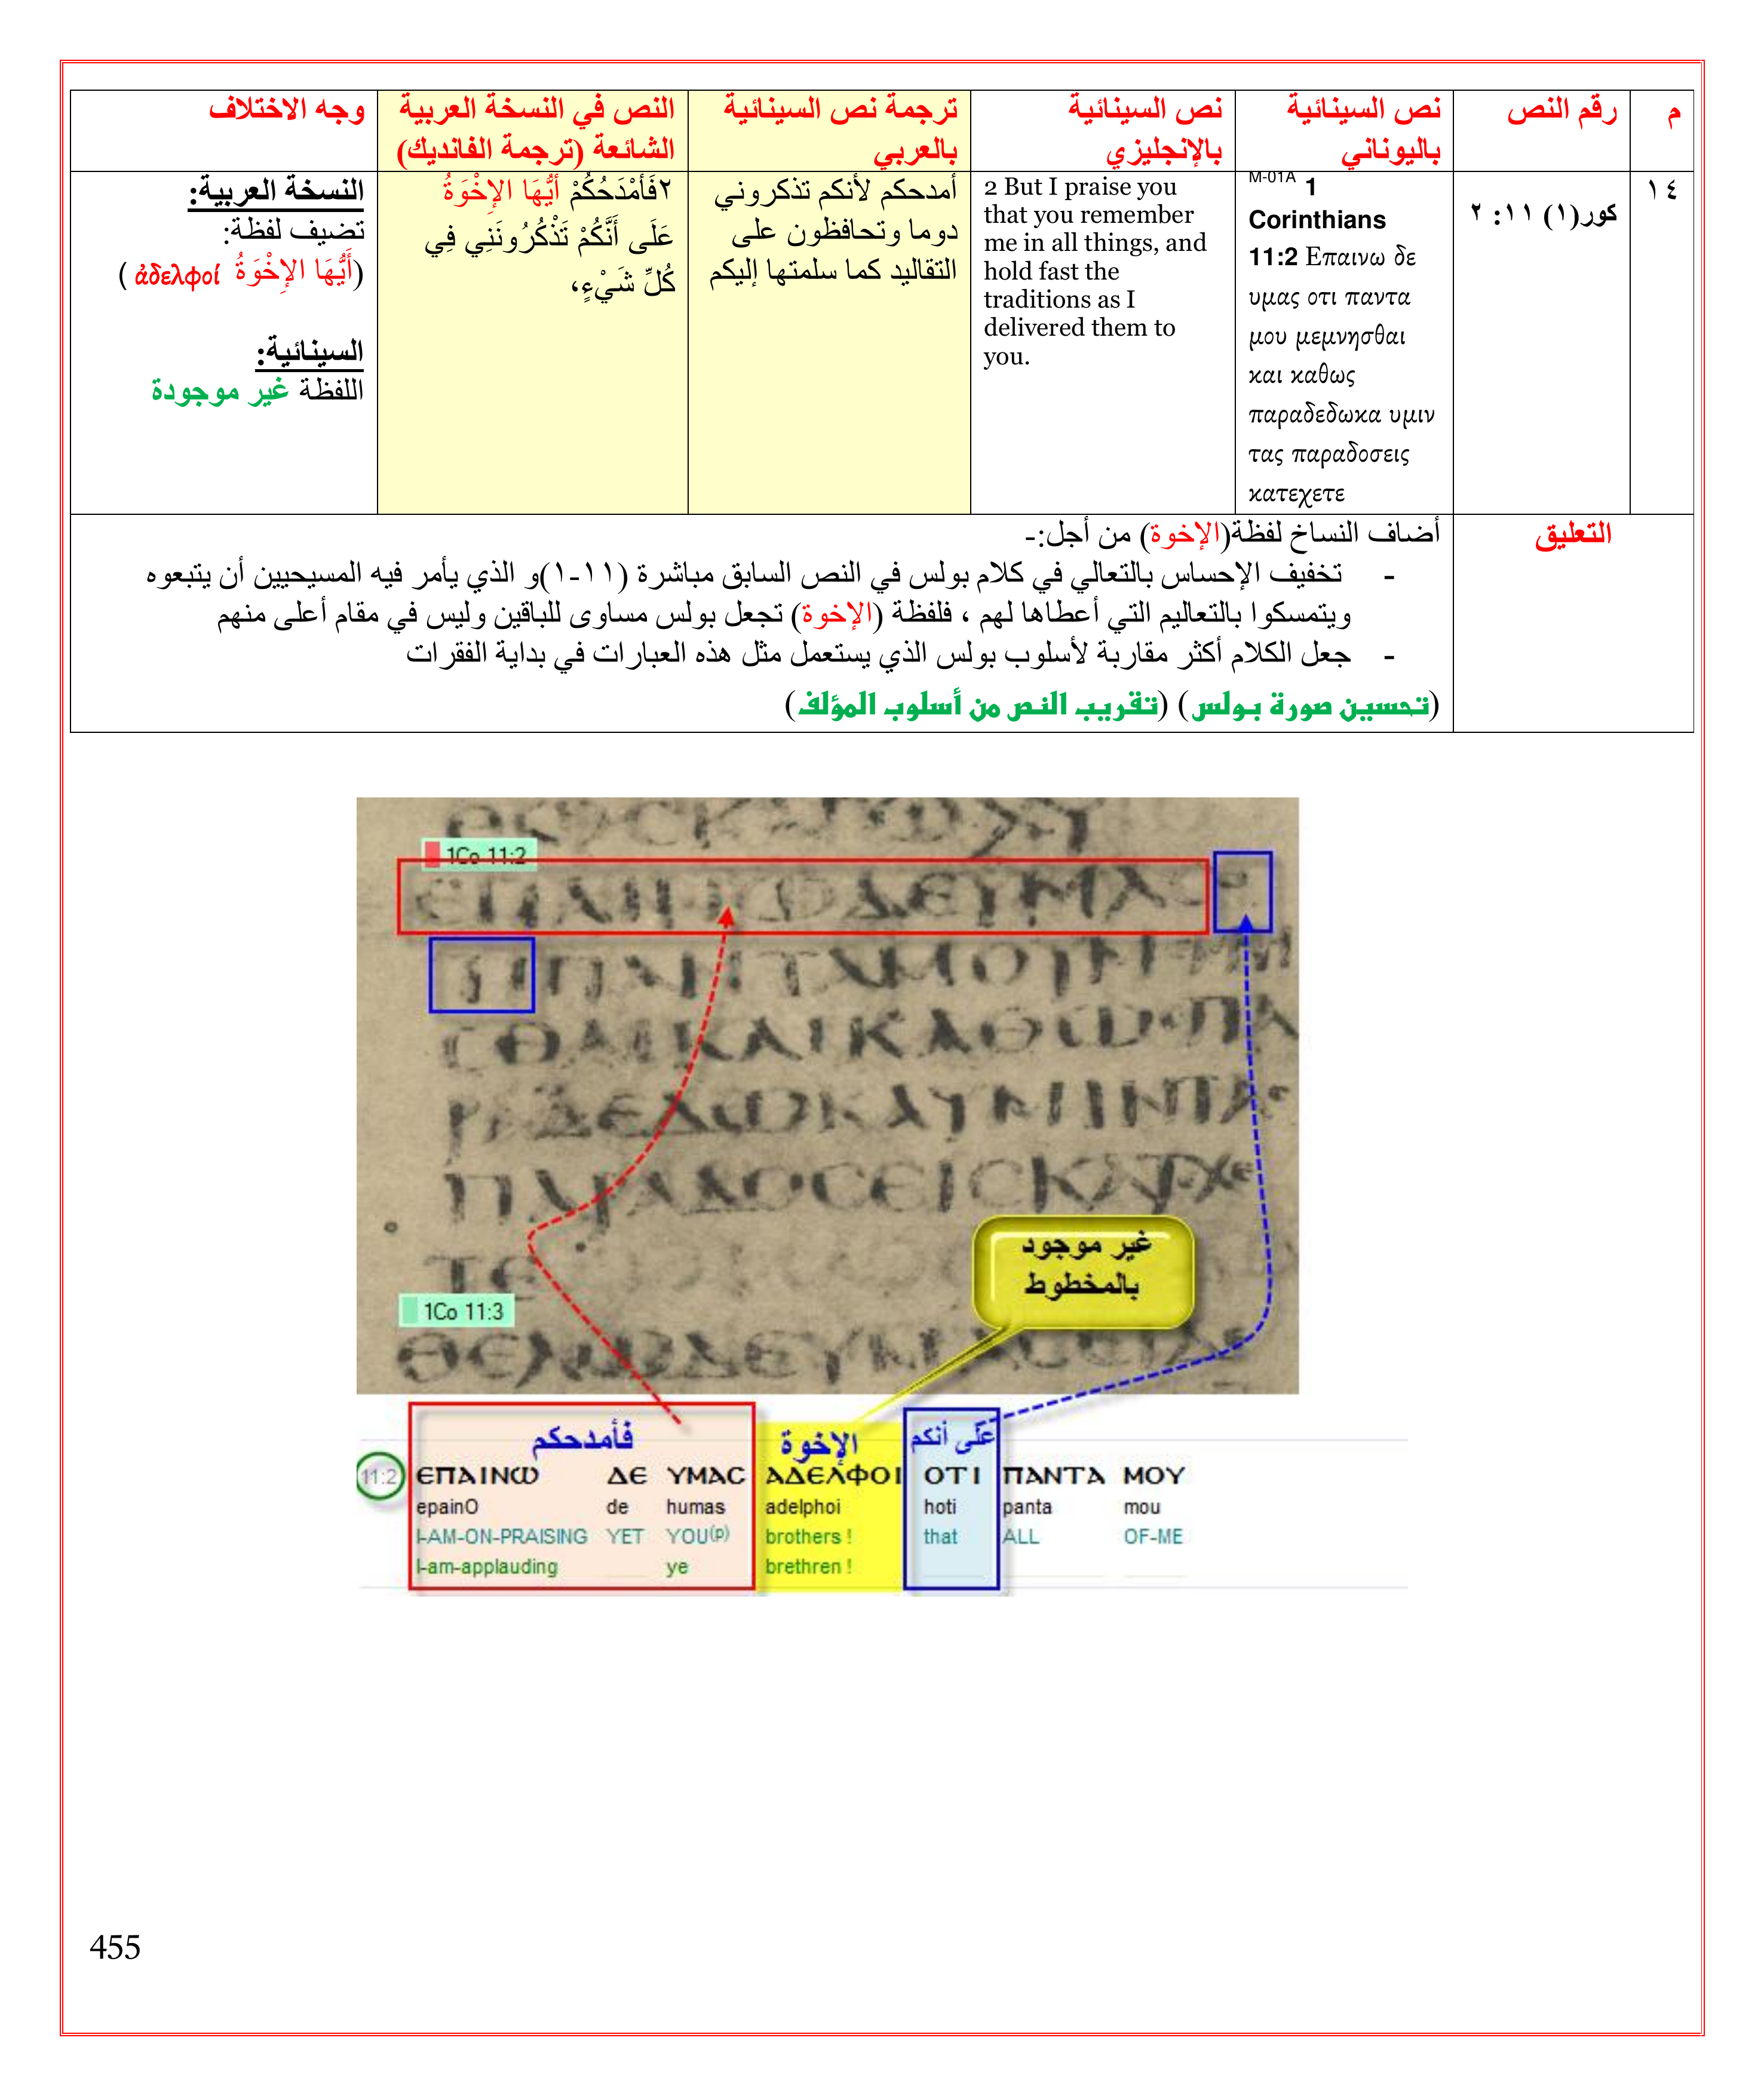 م
رقم النص
نص السينائية
باليوناني
نص السينائية
بالإنجليزي
ترجمة نص السينائية
بالعربي
النص في النسخة العربية
الشائعة (ترجمة الفانديك)
وجه الاختلاف
١٤
كور(١) ١١: ٢
M-01A 1
Corinthians
11:2 Επαινω δε
υμας οτι παντα
μου μεμνησθαι
και καθως
παραδεδωκα υμιν
τας παραδοσεις
κατεχετε
2 But I praise you
that you remember
me in all things, and
hold fast the
traditions as I
delivered them to
you.
أمدحكم لأنكم تذكروني
دوما وتحافظون على
التقاليد كما سلمتها إليكم
٢فَأَمْدَحُكُمْ أَيُّهَا الإِخْوَةُ
عَلَى أَنَّكُمْ تَذْكُرُونَنِي فِي
كُلِّ شَيْءٍ،
النسخة العربية:
تضيف لفظة:
(أَيُّهَا الإِخْوَةُ ἀδελφοί )
السينائية:
اللفظة غير موجودة
التعليق
أضاف النساخ لفظة(الإخوة) من أجل:-
- تخفيف الإحساس بالتعالي في كلام بولس في النص السابق مباشرة (١١-١)و الذي يأمر فيه المسيحيين أن يتبعوه
ويتمسكوا بالتعاليم التي أعطاها لهم ، فلفظة (الإخوة) تجعل بولس مساوى للباقين وليس في مقام أعلى منهم
- جعل الكلام أكثر مقاربة لأسلوب بولس الذي يستعمل مثل هذه العبارات في بداية الفقرات
(تحسين صورة بولس) (تقريب النص من أسلوب المؤلف)
1Co 11:2
ЄΠΑΙΝΩΔЄΥΜΑϹΟ
ΤΙΠΑΝΤΑΜΟΥΜ
ϹΘΑΙΚΑΙΚΑΘΩϹΠΑ
ΡΑΔЄΔΩΚΑΥΜΙΝΤΑϹ
ΠΑΡΑΔΟϹЄΙϹΚΑΤΧЄ
ΤЄ
غير موجود
بالمخطوط
1Co 11:3
ΘЄΛΩΔЄΥΜΑϹЄΙΔЄ
فأمدحكم الإخوة على أنكم
11:2 ЄΠΑΙΝΩ ΔЄ ΥΜΑϹ ΑΔЄΛΦΟΙ ΟΤΙ ΠΑΝΤΑ ΜΟΥ
epainO de humas adelphoi hoti panta mou
I-AM-ON-PRAISING YET YOU(p) brothers ! that ALL OF-ME
I-am-applauding ye brethren !
455